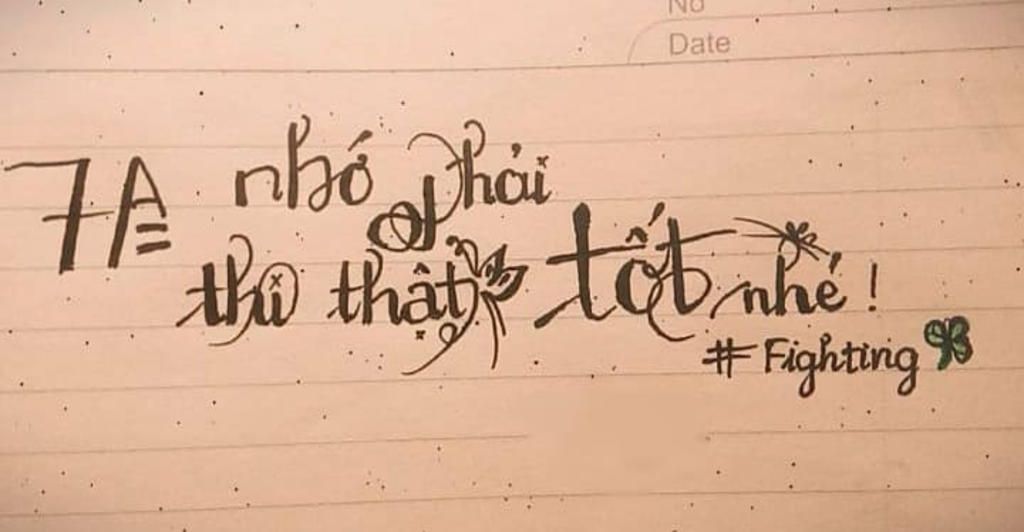 No
Date
7A nhớ phải
thi thật tốt nhé!
# Fighting